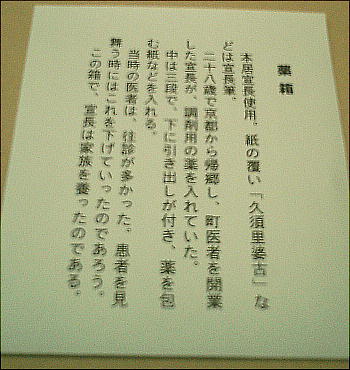 薬箱
本居宣長使用。紙の覆い「久須里婆古」な
どは宣長筆。
二十八歳で京都から帰郷し、町医者を開業
した宣長が、調剤用の薬を入れていた。
中は三段で、下に引き出しが付き、薬を包
む紙などを入れる。
当時の医者は、往診が多かった。患者を見
舞う時にはこれを下げていったのであろう。
この箱で、宣長は家族を養ったのである。